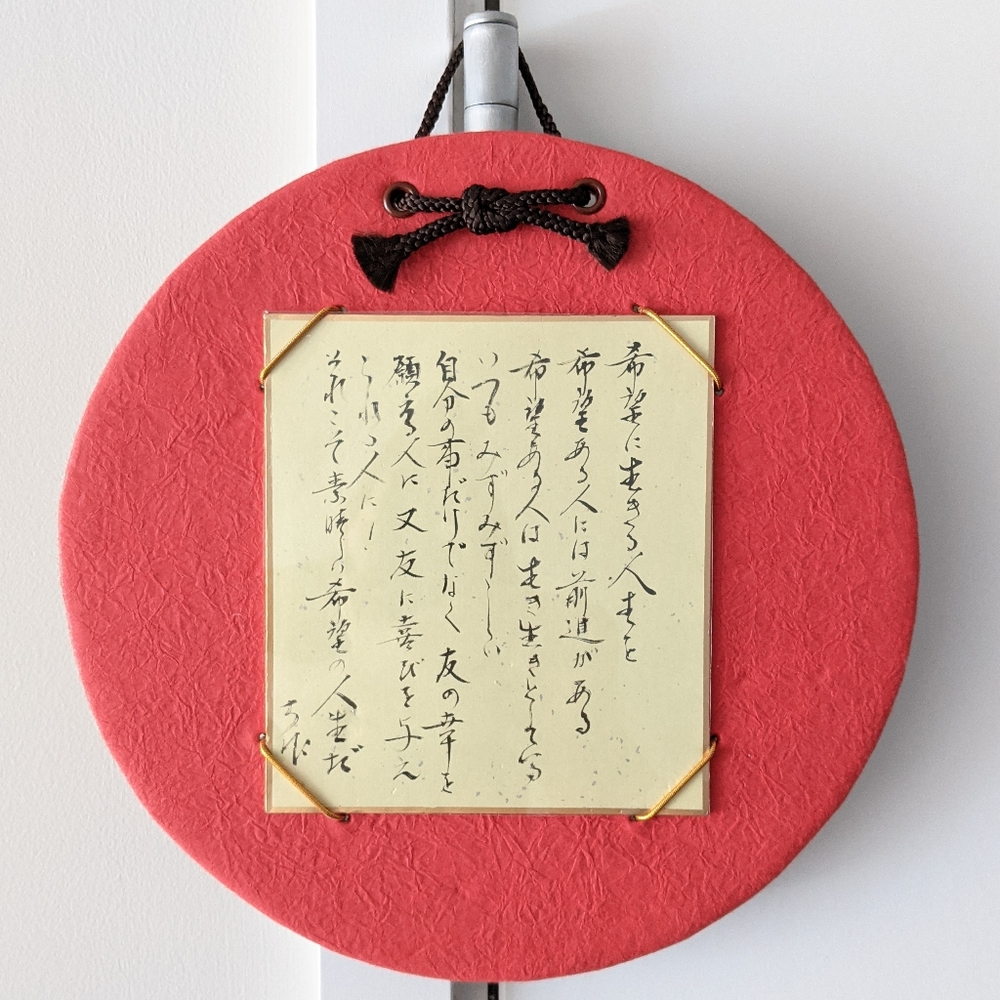 希望に生きる人生を
希望ある人には前進がある
希望ある人は生き生きとしてゐる
いつもみずみずしい
自分の事だけでなく友の幸を
願る人に又友に喜びを与え
られる人に!
それこそ素晴しい希望の人生だ